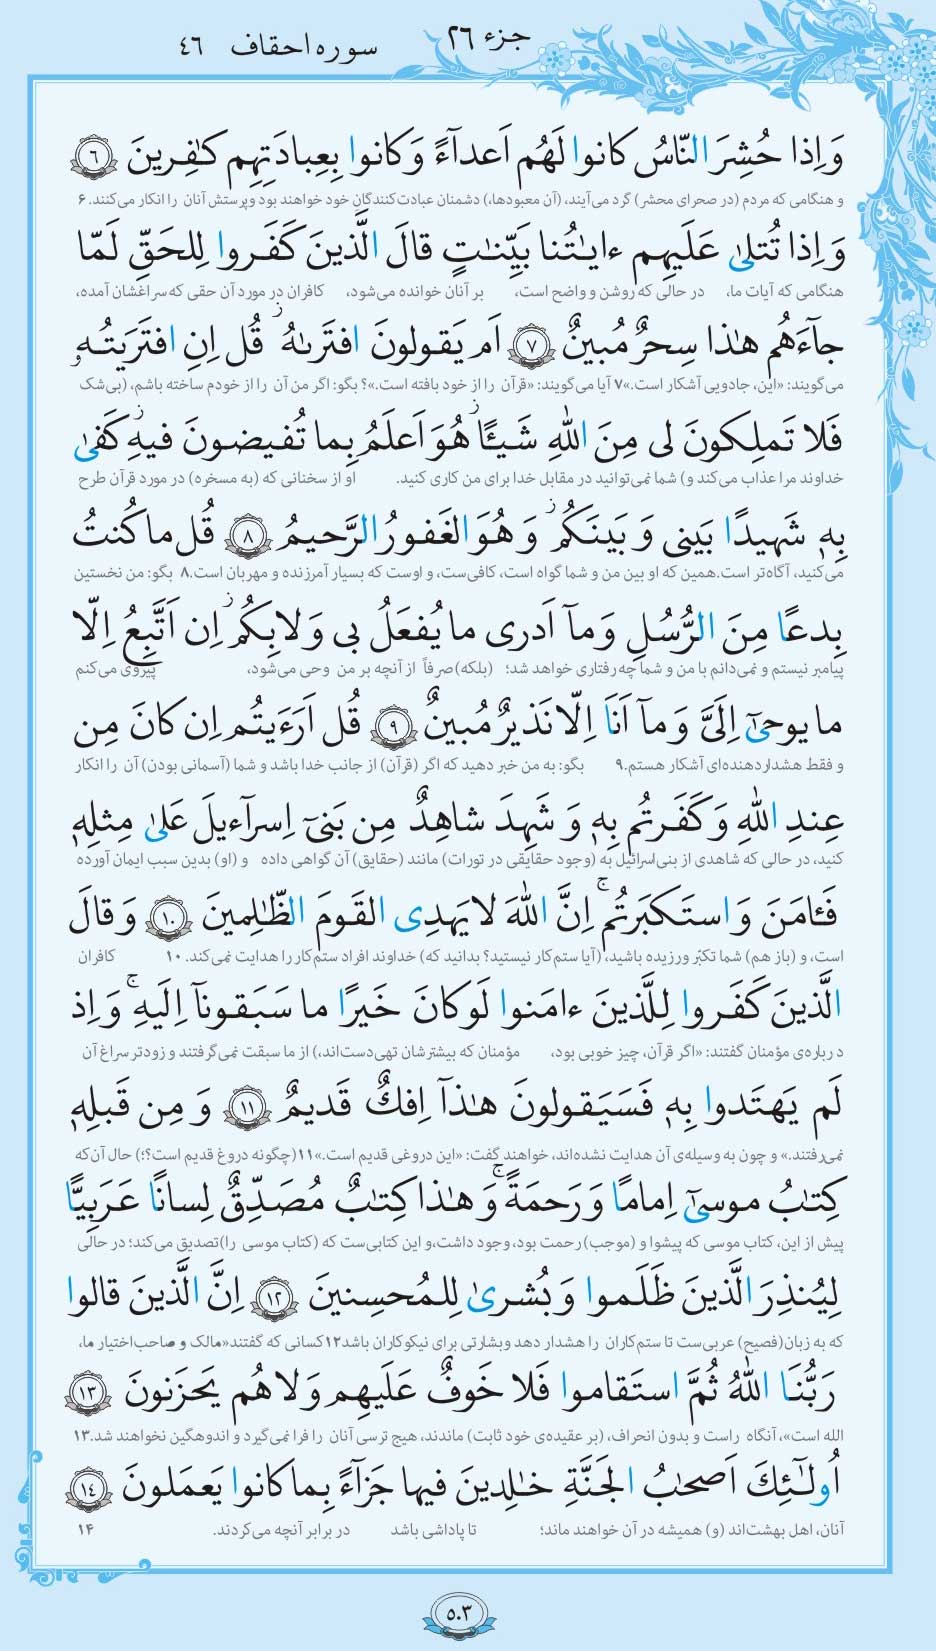 جزء ۲۶ سوره احقاف ۴۶
وَ اِذا حُشِرَ النّاسُ کانوا لَهُم اَعدآءً وَ کانوا بِعِبادَتِهِم کٰفِرینَ ۶
و هنگامی که مردم (در صحرای محشر) گرد می‌آیند، (آن معبودها)، دشمنان عبادت‌کنندگان خود خواهند بود و پرستش آنان را انکار می‌کنند. ۶
وَ اِذا تُتلیٰ عَلَیهِم ءایٰتُنا بَیِّنٰتٍ قالَ الَّذینَ کَفَروا لِلحَقِّ لَمّا
هنگامی که آیات ما، در حالی که روشن و واضح است، بر آنان خوانده می‌شود، کافران در مورد آن حقی که سراغشان آمده،
جآءَهُم هٰذا سِحرٌ مُبینٌ ۷ اَم یَقولونَ افتَرىٰهُ ز قُل اِنِ افتَرَیتُهو
می‌گویند: «این، جادویی آشکار است.»۷ آیا می‌گویند: «قرآن را از خود بافته است.»؟ بگو: اگر من آن را از خودم ساخته باشم، (بی‌شک
فَلا تَملِکونَ لی مِنَ اللّٰهِ شَیـًٔا ز هُوَ اَعلَمُ بِما تُفیضونَ فیهِ ز کَفیٰ
خداوند مرا عذاب می‌کند و) شما نمی‌توانید در مقابل خدا برای من کاری کنید. او از سخنانی که (به مسخره) در مورد قرآن طرح
بِهٖ شَهیدًا بَینی وَ بَینَکُم ز وَ هُوَ الغَفورُ الرَّحیمُ ۸ قُل ما کُنتُ
می‌کنید، آگاه‌تر است. همین که او بین من و شما گواه است، کافی‌ست، و اوست که بسیار آمرزنده و مهربان است.۸ بگو: من نخستین
بِدعًا مِنَ الرُّسُلِ وَ مآ اَدری ما یُفعَلُ بی وَ لا بِکُم ز اِن اَتَّبِعُ اِلّا
پیامبر نیستم و نمی‌دانم با من و شما چه رفتاری خواهد شد؛ (بلکه) صرفاً از آنچه بر من وحی می‌شود، پیروی می‌کنم
ما یوحیٰٓ اِلَیَّ وَ مآ اَنَا اِلّا نَذیرٌ مُبینٌ ۹ قُل اَرَءَیتُم اِن کانَ مِن
و فقط هشداردهنده‌ای آشکار هستم.۹ بگو: به من خبر دهید که اگر (قرآن) از جانب خدا باشد و شما (آسمانی بودن) آن را انکار
عِندِ اللّٰهِ وَ کَفَرتُم بِهٖ وَ شَهِدَ شاهِدٌ مِن بَنیٓ اِسرآءیلَ عَلیٰ مِثلِهٖ
کنید، در حالی که شاهدی از بنی‌اسرائیل به (وجود حقایقی در تورات) مانند (حقایق) آن گواهی داده و (او) بدین سبب ایمان آورده
فَـٔامَنَ وَ استَکبَرتُم ج اِنَّ اللّٰهَ لا یَهدِی القَومَ الظّٰلِمینَ ۱۰ وَ قالَ
است، و (باز هم) شما تکبّر ورزیده باشید، (آیا ستم‌کار نیستید؟ بدانید که) خداوند افراد ستم‌کار را هدایت نمی‌کند. ۱۰ کافران
الَّذینَ کَفَروا لِلَّذینَ ءامَنوا لَو کانَ خَیرًا ما سَبَقونآ اِلَیهِ ج وَ اِذ
درباره‌ی مؤمنان گفتند: «اگر قرآن، چیز خوبی بود، مؤمنان که بیشترشان تهی‌دست‌اند،) از ما سبقت نمی‌گرفتند و زودتر سراغ آن
لَم یَهتَدوا بِهٖ فَسَیَقولونَ هٰذآ اِفکٌ قَدیمٌ ۱۱ وَ مِن قَبلِهٖ
نمی‌رفتند.» و چون به وسیله‌ی آن هدایت نشده‌اند، خواهند گفت: «این دروغی قدیم است.»۱۱ (چگونه دروغ قدیم است؟؛) حال آن‌که
کِتٰبُ موسیٰٓ اِمامًا وَ رَحمَةً ج وَ هٰذا کِتٰبٌ مُصَدِّقٌ لِسانًا عَرَبِیًّا
پیش از این، کتاب موسی که پیشوا و (موجب) رحمت بود، وجود داشت، و این کتابی‌ست که (کتاب موسی را) تصدیق می‌کند؛ در حالی
لِیُنذِرَ الَّذینَ ظَلَموا وَ بُشریٰ لِلمُحسِنینَ ۱۲ اِنَّ الَّذینَ قالوا
که به زبان (فصیح) عربی‌ست تا ستم‌کاران را هشدار دهد و بشارتی برای نیکوکاران باشد۱۲ کسانی که گفتند «مالک و صاحب‌اختیار ما،
رَبُّنَا اللّٰهُ ثُمَّ استَقاموا فَلا خَوفٌ عَلَیهِم وَ لا هُم یَحزَنونَ ۱۳
الله است»، آنگاه راست و بدون انحراف، (بر عقیده‌ی خود ثابت) ماندند، هیچ ترسی آنان را فرا نمی‌گیرد و اندوهگین نخواهند شد.۱۳
اُولٰٓئِكَ اَصحٰبُ الجَنَّةِ خٰلِدینَ فیها جَزآءً بِما کانوا یَعمَلونَ ۱۴
آنان، اهل بهشت‌اند (و) همیشه در آن خواهند ماند؛ تا پاداشی باشد در برابر آنچه می‌کردند. ۱۴
۵۰۳